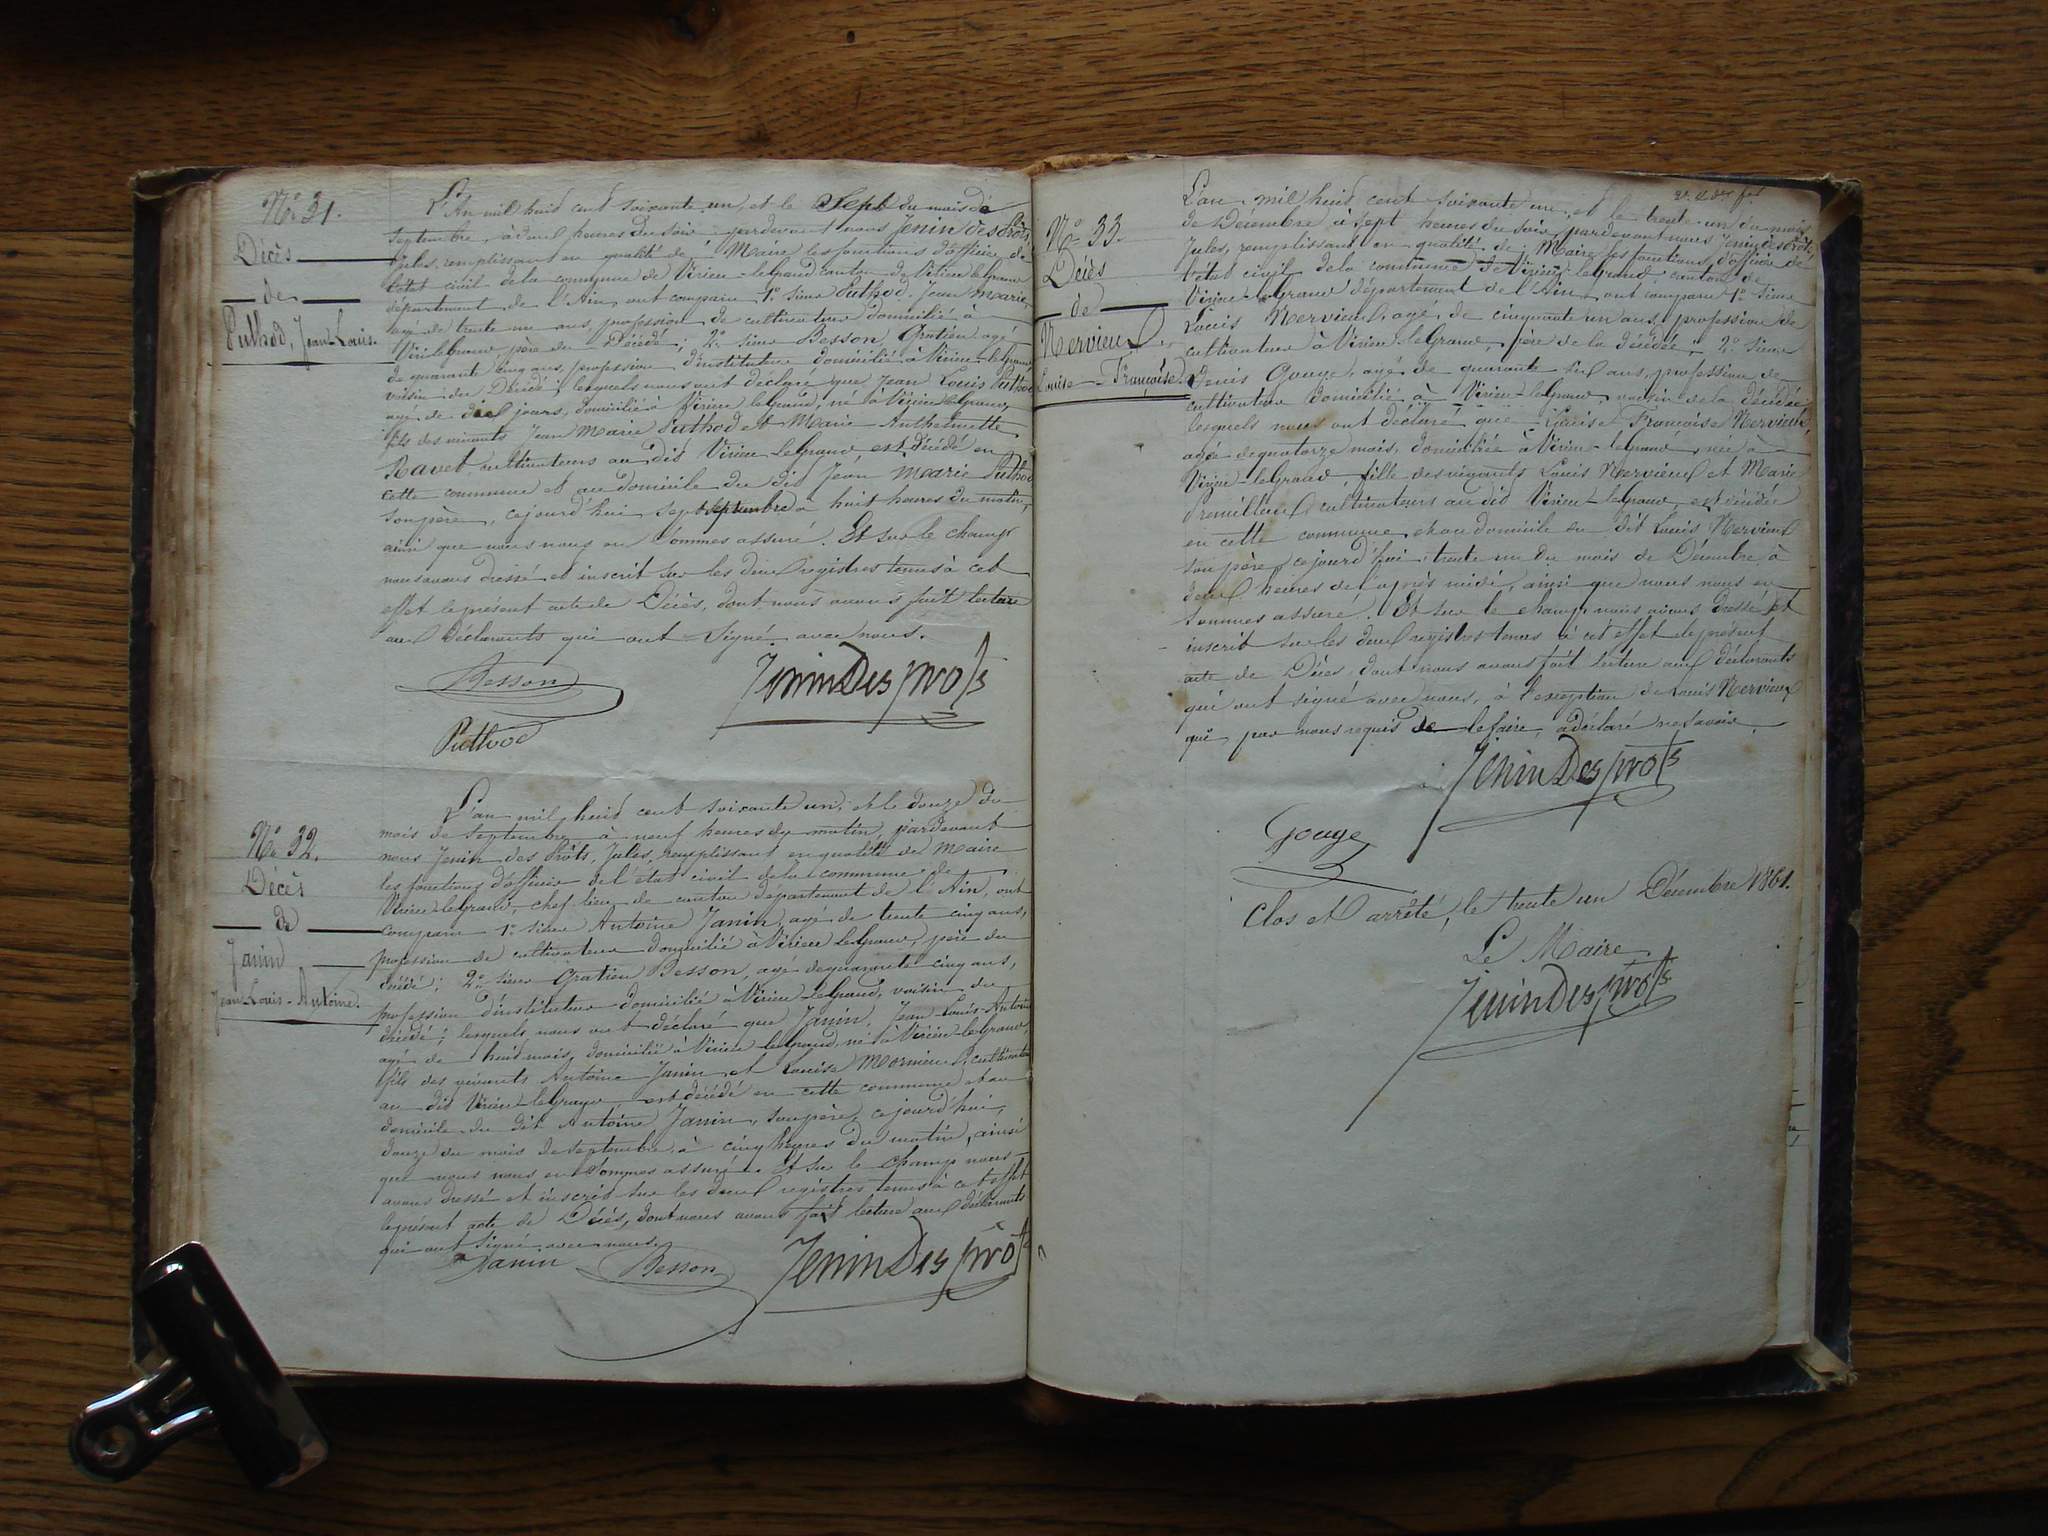 N° 31.
Décès
de
Puthod, Jean-Louis.
L'An mil huit cent soixante un et le Sept du mois de
Septembre, à deux heures du soir pardevant nous Jenin des Prôts,
Jules, remplissant en qualité de Maire les fonctions d'officier de
l'état civil de la commune de Virieu-legrand canton de Virieu legrand
département de l'Ain, ont comparu 1° sieur Puthod, Jean Marie,
agé de trente un ans, profession de cultivateur domicilié à
Virieu legrand, père du Décédé; 2° sieur Besson, Gratien agé
de quarante cinq ans, profession d'instituteur domicilié à Virieu-legrand,
voisin du Décédé; lesquels nous ont déclaré que Jean Louis Puthod
agé de dix jours, domicilié à Virieu legrand, né à Virieu legrand,
fils des vivants Jean Marie Puthod et Marie Anthelmette
Ravet cultivateurs au dit Virieu LeGrand est décédé en
cette commune et au domicile du dit Jean Marie Puthod
son père, cejourd'hui sept septembre à huit heures du matin,
ainsi que nous nous en sommes assuré. Et sur le champ
nous avons dressé et inscrit sur les deux registres tenus à cet
effet le présent acte de Décès, dont nous avons fait lecture
aux Déclarants qui ont signé avec nous.
Besson
JeninDesprots
Puthod
N° 32.
Décès
de
Janin
Jean Louis-Antoine.
L'an mil huit cent soixante un, et le douze du
mois de Septembre, à neuf heures du matin, pardevant
nous Jenin des Prôts, Jules, remplissant en qualité de Maire
les fonctions d'officier de l'état civil de la commune de
Virieu-legrand, chef lieu de canton département de l'Ain, ont
comparu 1° sieur Antoine Janin, agé de trente cinq ans,
profession de cultivateur domicilié à Virieu LeGrand, père du
décédé; 2° sieur Gratien Besson, agé de quarante cinq ans,
profession d'instituteur domicilié à Virieu LeGrand, voisin du
décédé; lesquels nous ont déclaré que Janin, Jean-Louis-Antoine
agé de huit mois, domicilié à Virieu-legrand, né à Virieu-le Grand,
fils des vivants Antoine Janin et Louise Mornieux, cultivateurs
au dit Virieu-legrand est décédé en cette commune et au
domicile du dit Antoine Janin, son père, cejourd'hui,
douze du mois de septembre, à cinq heures du matin, ainsi
que nous nous en sommes assuré. Et sur le champ nous
avons dressé et inscrit sur les deux registres tenus à cet effet
le présent acte de Décès, dont nous avons fait lecture aux déclarants
qui ont signé avec nous.
Janin Besson JeninDesprôts
N° 33.
Décès
de
Nervieux
Louise-Françoise.
L'an mil huit cent soixante un et le trente un du mois
de Décembre à sept heures du soir pardevant nous Jenin des Prôts,
Jules, remplissant en qualité de Maire les fonctions d'officier de
l'état civil de la commune de Virieu-legrand, canton de
Virieu-leGrand département de l'Ain, ont comparu 1° sieur
Louis Nervieux, agé de cinquante un ans, profession de
cultivateur à Virieu-leGrand, père de la décédée; 2° sieur
Denis Gouge, agé de quarante six ans, profession de
cultivateur domicilié à Virieu-leGrand voisin de la décédée
lesquels nous ont déclaré que Louise Françoise Nervieux,
agée de quatorze mois, domiciliée à Virieu-legrand, née à
Virieu-legrand, fille des vivants Louis Nervieux et Marie
cultivateurs au dit Virieu-legrand, est décédée
en cette commune et au domicile du dit Louis Nervieux
son père, cejourd'hui trente un du mois de Décembre à
deux heures de l'après midi, ainsi que nous nous en
sommes assuré. Et sur le champ nous avons dressé et
inscrit sur les deux registres tenus à cet effet le présent
acte de Décès, dont nous avons fait lecture aux déclarants
qui ont signé avec nous, à l'exception de Louis Nervieux
qui, par nous requis de le faire, a déclaré ne savoir.
JeninDesprots
Gouge
Clos et arrêté, le trente un Décembre 1861.
Le Maire
JeninDesprots